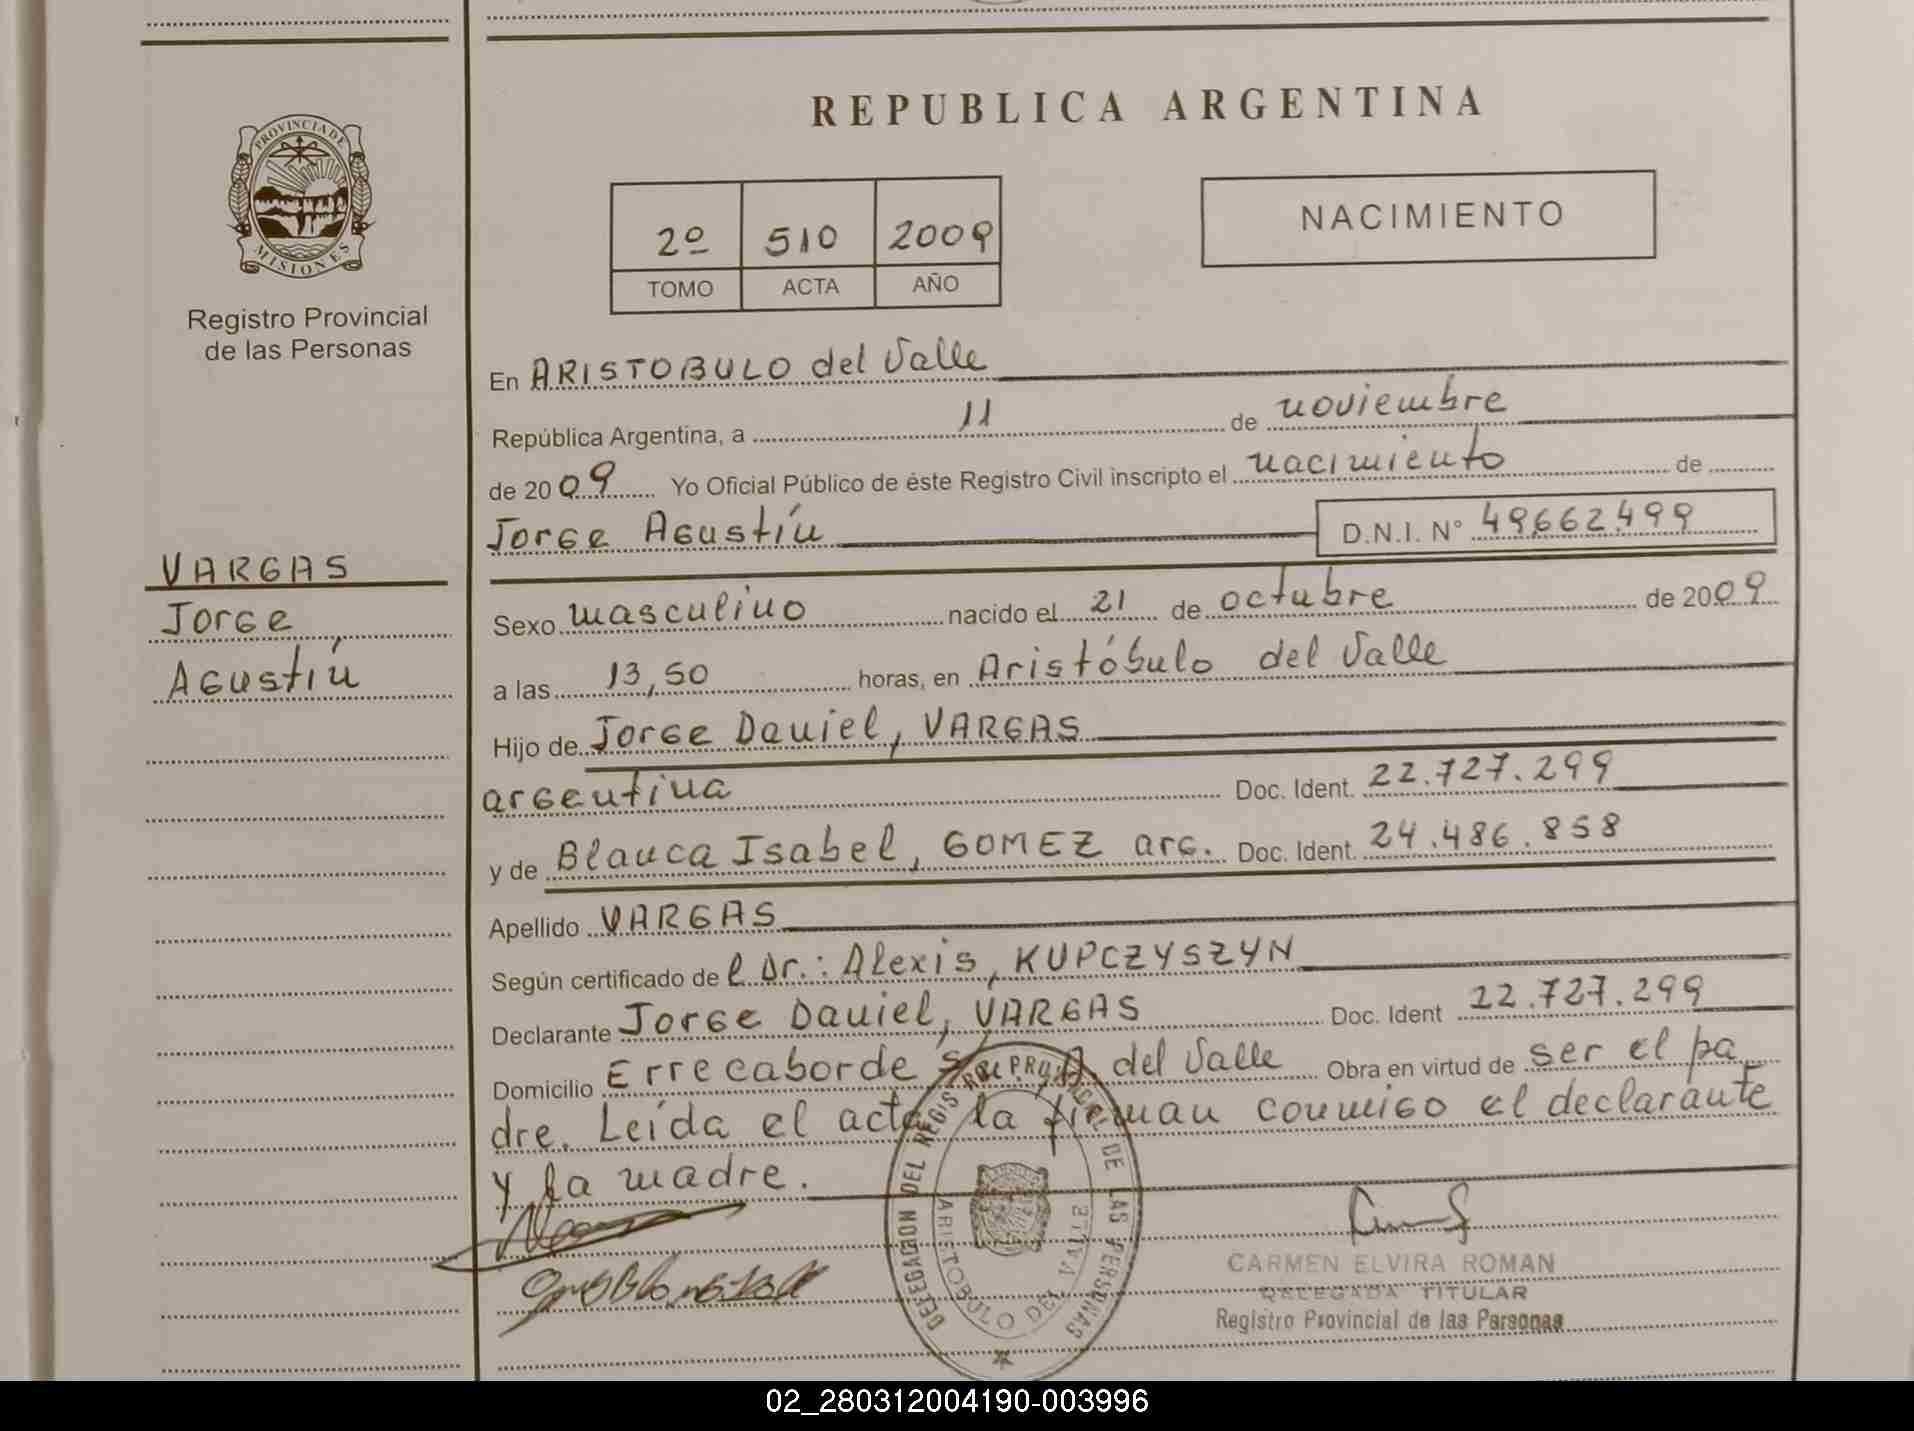 PROVINCIA DE
MISIONES
Registro Provincial
de las Personas
VARGAS
Jorge
Agustín
REPUBLICA ARGENTINA
2º 510 2009
TOMO ACTA AÑO
NACIMIENTO
En ARISTOBULO del Valle
República Argentina, a 11 de noviembre
de 2009 Yo Oficial Público de éste Registro Civil inscripto el nacimiento de
Jorge Agustín D.N.I. N° 49.662.499
Sexo masculino nacido el 21 de octubre de 2009
a las 13,50 horas, en Aristóbulo del Valle
Hijo de Jorge Daniel, VARGAS
argentina Doc. Ident. 22.727.299
y de Blanca Isabel, GOMEZ arg. Doc. Ident. 24.486.858
Apellido VARGAS
Según certificado de l Dr.: Alexis, KUPCZYSZYN
Declarante Jorge Daniel, VARGAS Doc. Ident 22.727.299
Domicilio Errecaborde del Valle Obra en virtud de ser el pa
dre. Leída el acta, la firman conmigo el declarante
y la madre.
DELEGACION DEL REGISTRO PROVINCIAL DE LAS PERSONAS
ARISTOBULO DEL VALLE
CARMEN ELVIRA ROMAN
DELEGADA TITULAR
Registro Provincial de las Personas
02_280312004190-003996